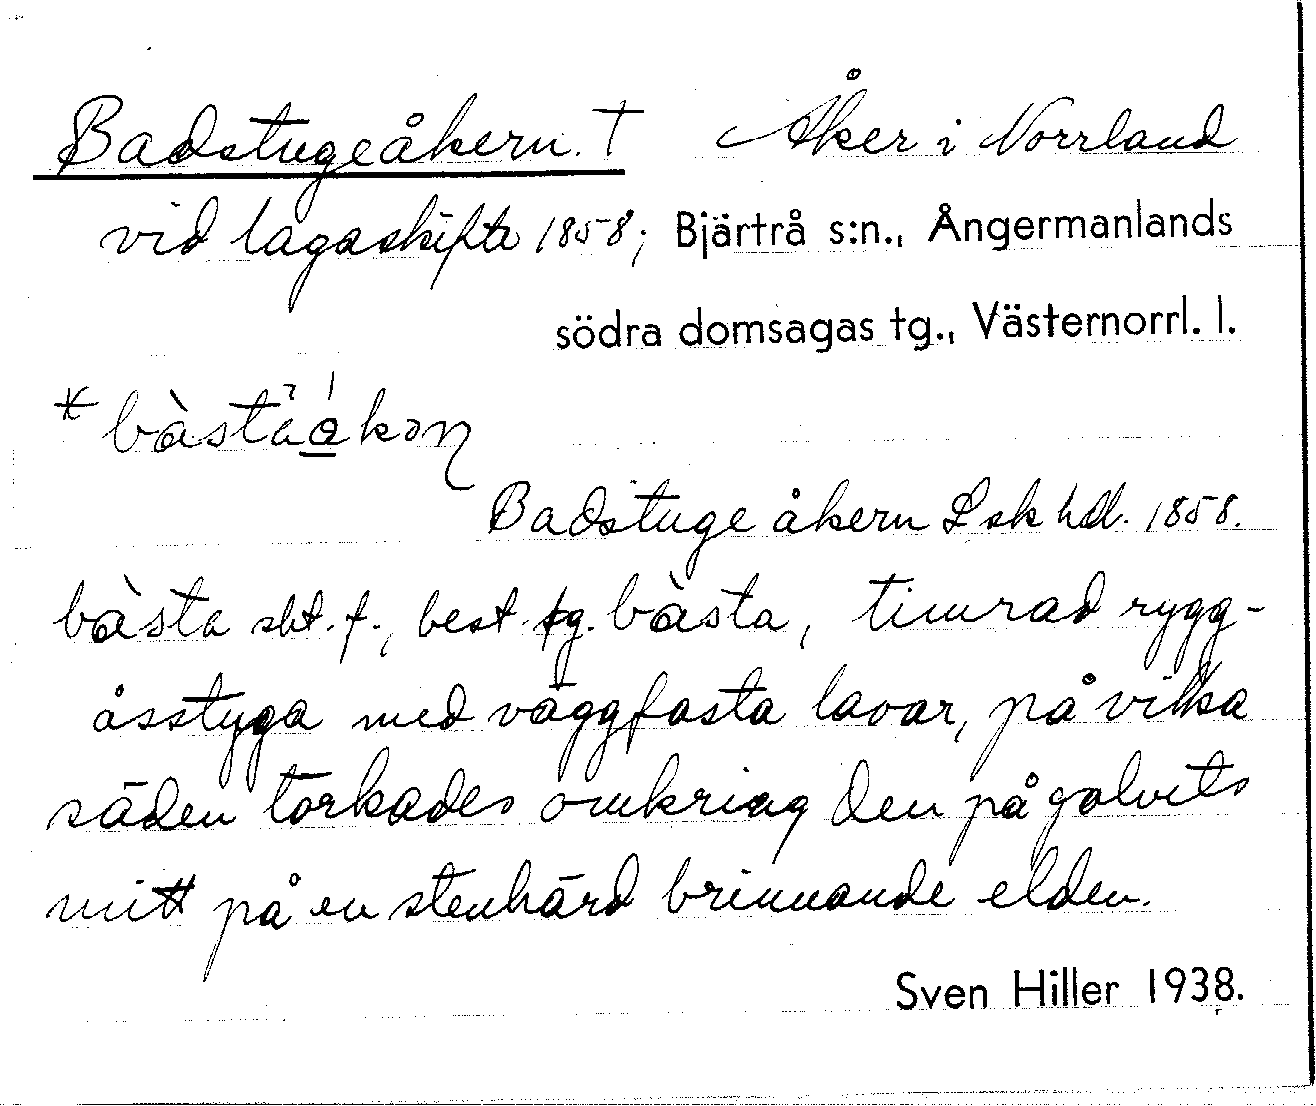 Badstugeåkern. † Åker i Norrland
vid lagaskifte 1858; Bjärtrå s:n., Ångermanlands
södra domsagas tg., Västernorrl. l.
Badstuge åkern Lsk hdl. 1858.
bàsta sbt. f., best. fg. bàsta, timrad rygg-
åsstuga med väggfasta lavar, på vilka
säden torkades omkring den på golvets
mitt på en stenhärd brinnande elden.
Sven Hiller 1938.